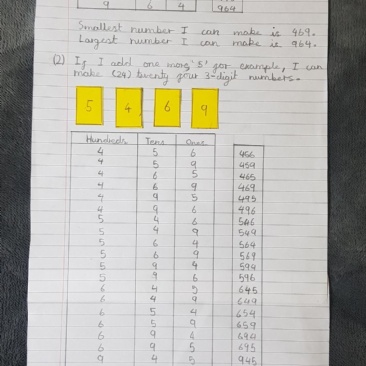 9 6 4 964
Smallest number I can make is 469.
Largest number I can make is 964.
(2) If I add one more '5' for example, I can
make (24) twenty four 3-digit numbers.
5 4 6 9
Hundreds Tens Ones
4 5 6 456
4 5 9 459
4 6 5 465
4 6 9 469
4 9 5 495
4 9 6 496
5 4 6 546
5 4 9 549
5 6 4 564
5 6 9 569
5 9 4 594
5 9 6 596
6 4 5 645
6 4 9 649
6 5 4 654
6 5 9 659
6 9 4 694
6 9 5 695
9 4 5 945